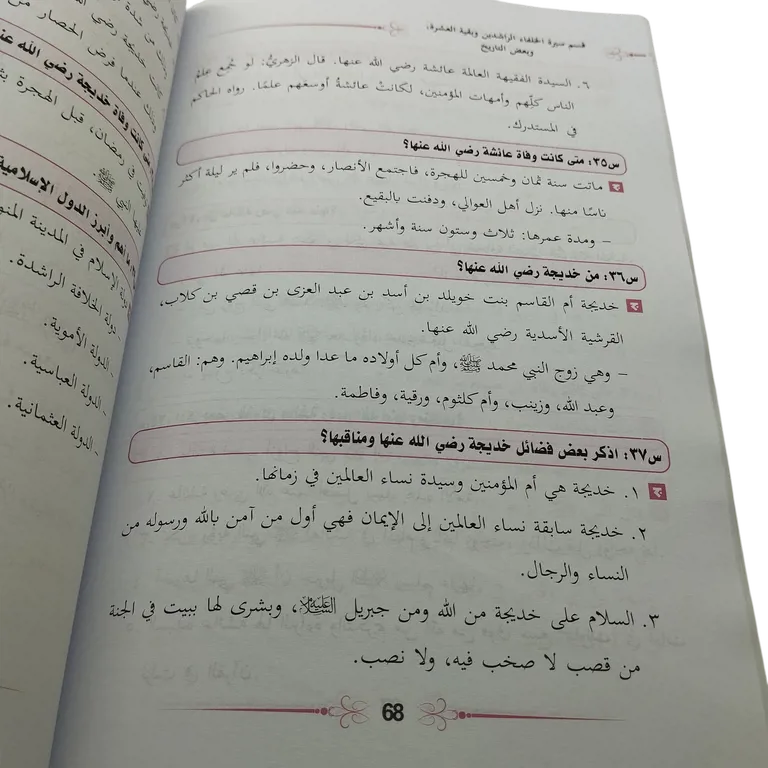 قسم سيرة الخلفاء الراشدين وبقية العشرة،
وبعض التاريخ
٦. السيدة الفقيهة العالمة عائشة رضي الله عنها. قال الزهريُّ: لو جُمع علمُ
الناس كلِّهم وأمهات المؤمنين، لكانتْ عائشةُ أوسعَهم علمًا. رواه الحاكم
في المستدرك.
س٣٥: متى كانت وفاة عائشة رضي الله عنها؟
ج ماتت سنة ثمان وخمسين للهجرة، فاجتمع الأنصار، وحضروا، فلم ير ليلة أكثر
ناسًا منها. نزل أهل العوالي، ودفنت بالبقيع.
– ومدة عمرها: ثلاث وستون سنة وأشهر.
س٣٦: من خديجة رضي الله عنها؟
ج خديجة أم القاسم بنت خويلد بن أسد بن عبد العزى بن قصي بن كلاب،
القرشية الأسدية رضي الله عنها.
– وهي زوج النبي محمد ﷺ، وأم كل أولاده ما عدا ولده إبراهيم. وهم: القاسم،
وعبد الله، وزينب، وأم كلثوم، ورقية، وفاطمة.
س٣٧: اذكر بعض فضائل خديجة رضي الله عنها ومناقبها؟
ج ١. خديجة هي أم المؤمنين وسيدة نساء العالمين في زمانها.
٢. خديجة سابقة نساء العالمين إلى الإيمان فهي أول من آمن بالله ورسوله من
النساء والرجال.
٣. السلام على خديجة من الله ومن جبريل عليه السلام، وبشرى لها ببيت في الجنة
من قصب لا صخب فيه، ولا نصب.
68
كانت وفاة خديجة رضي الله عنها
في رمضان، قبل الهجرة
النبي ﷺ.
أهم وأبرز الدول الإسلامية
الإسلام في المدينة
– دولة الخلافة الراشدة.
– الدولة الأموية.
– الدولة العباسية.
– الدولة العثمانية.